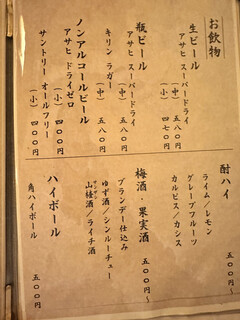 お飲物
生ビール
アサヒ スーパードライ
(中) 五八〇円
(小) 四七〇円
瓶ビール
アサヒ スーパードライ
(中) 五八〇円
キリン ラガー
(中) 五八〇円
ノンアルコールビール
アサヒ ドライゼロ
(小) 四〇〇円
サントリー オールフリー
(小) 四〇〇円
酎ハイ
ライム/レモン
グレープフルーツ
カルピス/カシス
五〇〇円
梅酒・果実酒
五〇〇円〜
ブランデー仕込み
ゆず酒/シンルーチュー
山桃酒/ライチ酒
ハイボール
五〇〇円〜
角ハイボール
五〇〇円